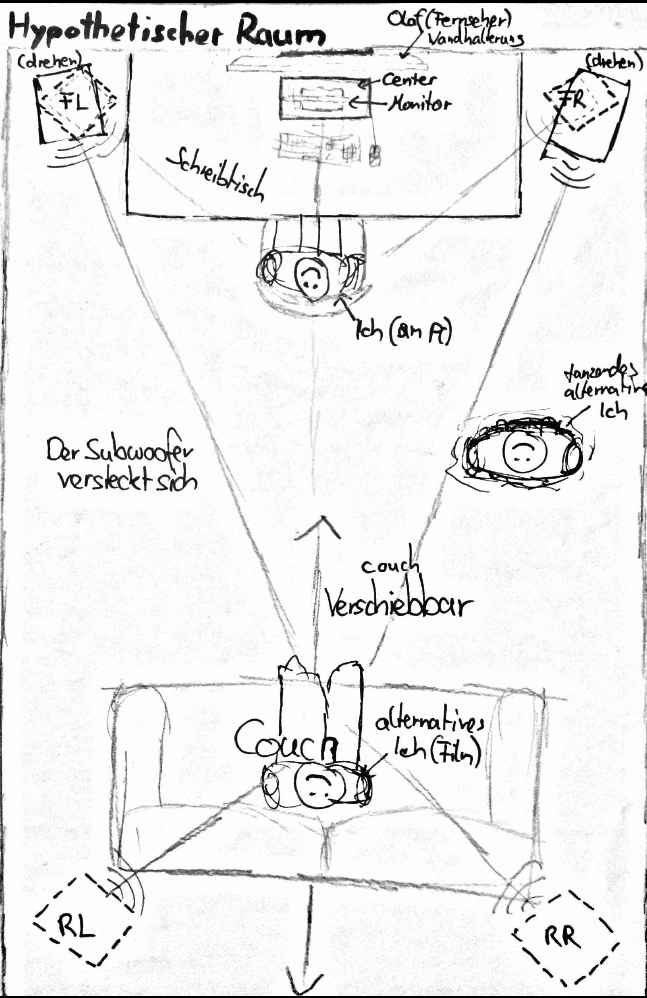 Hypothetischer Raum
Olaf (Fernseher)
Wandhalterung
(drehen)
(drehen)
FL
Center
Monitor
FR
Schreibtisch
Ich (an PC)
tanzendes
alternatives
Ich
Der Subwoofer
versteckt sich
couch
Verschiebbar
Couch
alternatives
Ich (Film)
RL
RR